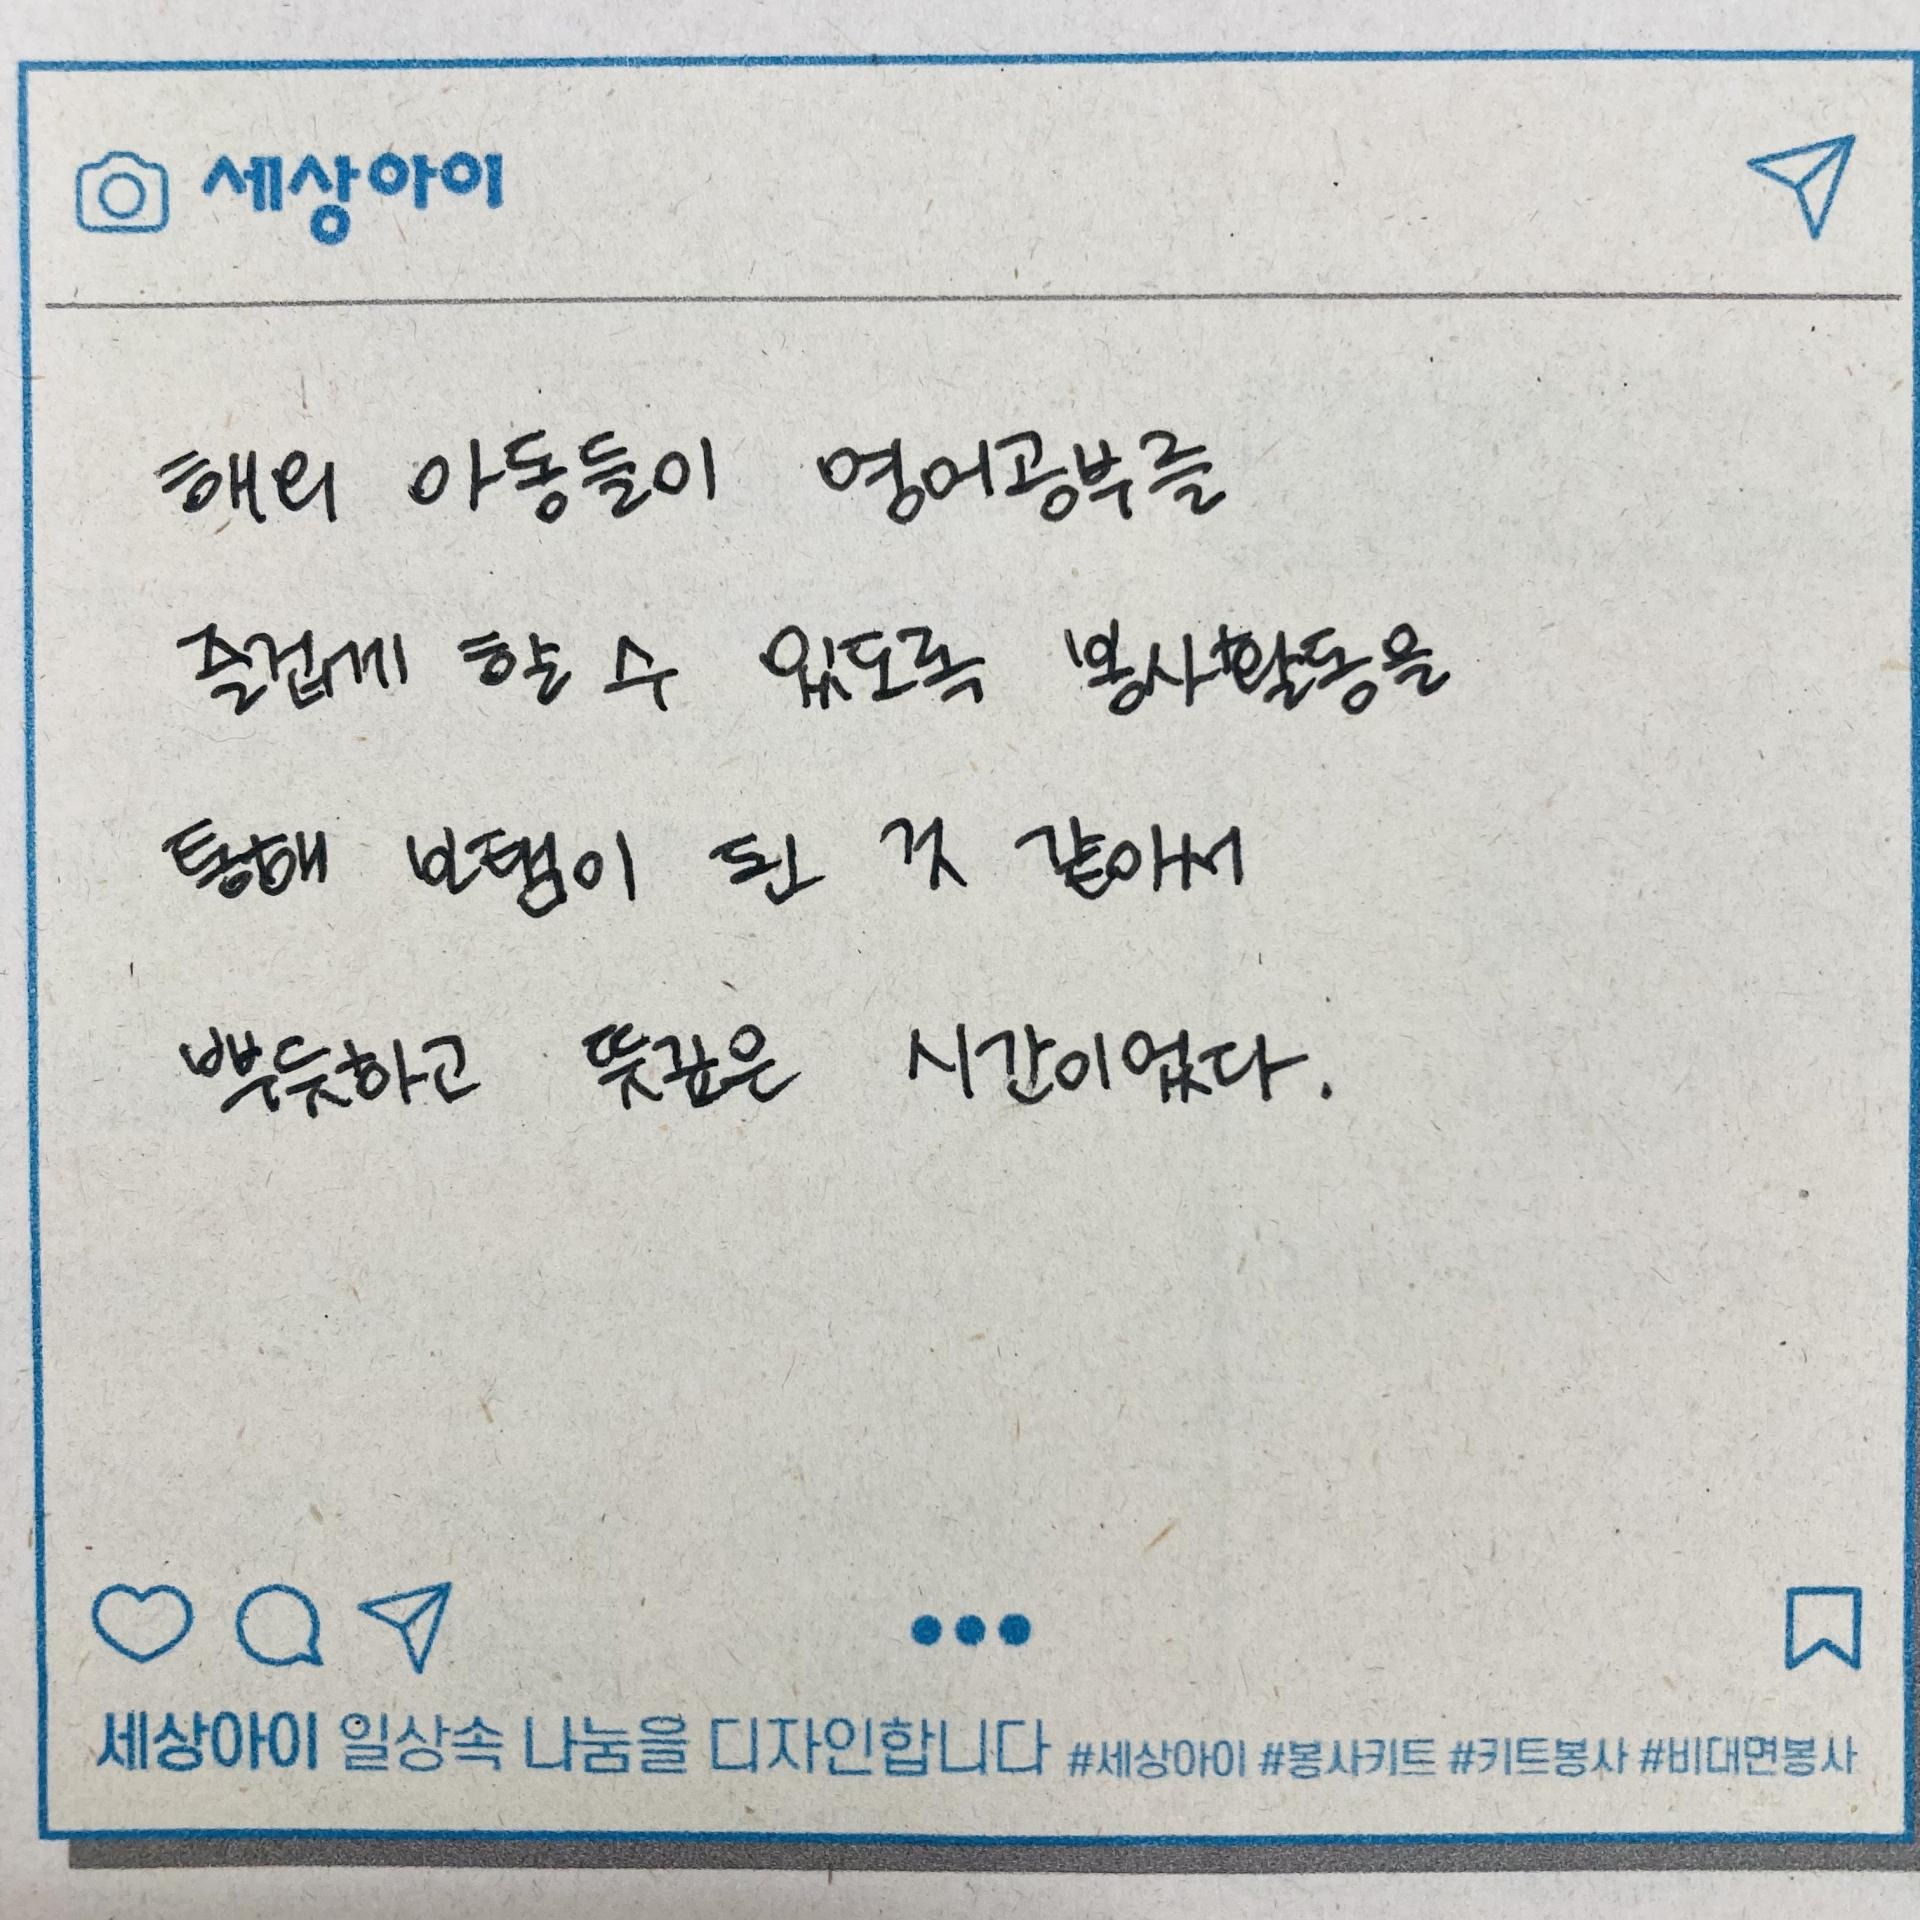 세상아이
해외 아동들이 영어공부를
즐겁게 할 수 있도록 봉사활동을
통해 보탬이 된 것 같아서
뿌듯하고 뜻깊은 시간이었다.
세상아이 일상속 나눔을 디자인합니다 #세상아이 #봉사키트 #키트봉사 #비대면봉사